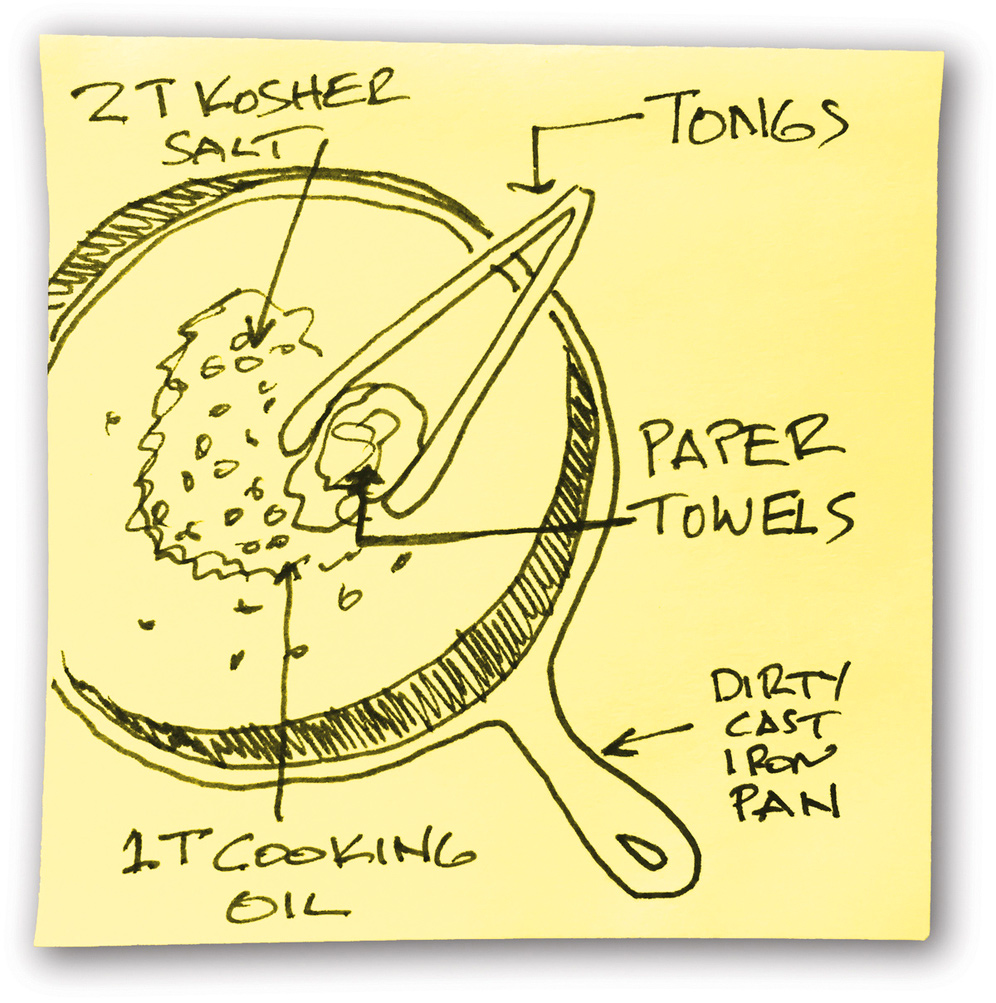 2T KOSHER
SALT
TONGS
PAPER
TOWELS
DIRTY
CAST
IRON
PAN
1T COOKING
OIL